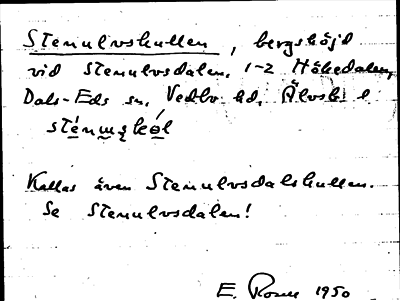 Stenulvskullen, bergshöjd
vid Stenulvsdalen, 1-2 Håbedalen,
Dals-Eds sn, Vedbo hd, Älvsb. l
Kallas även Stenulvsdalskullen.
Se Stenulvsdalen!
E. Rosell 1950